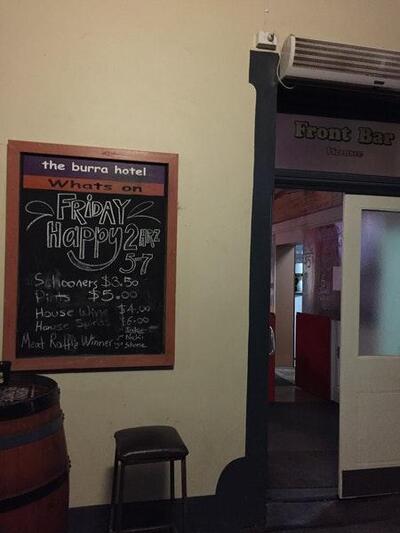 the burra hotel
Whats on
FRIDAY
Happy 2 HRZ
5-7
Schooners $3.50
Pints $5.00
House Wine $4.00
House Spirits $6.00
Meat Raffle Winners
Front Bar